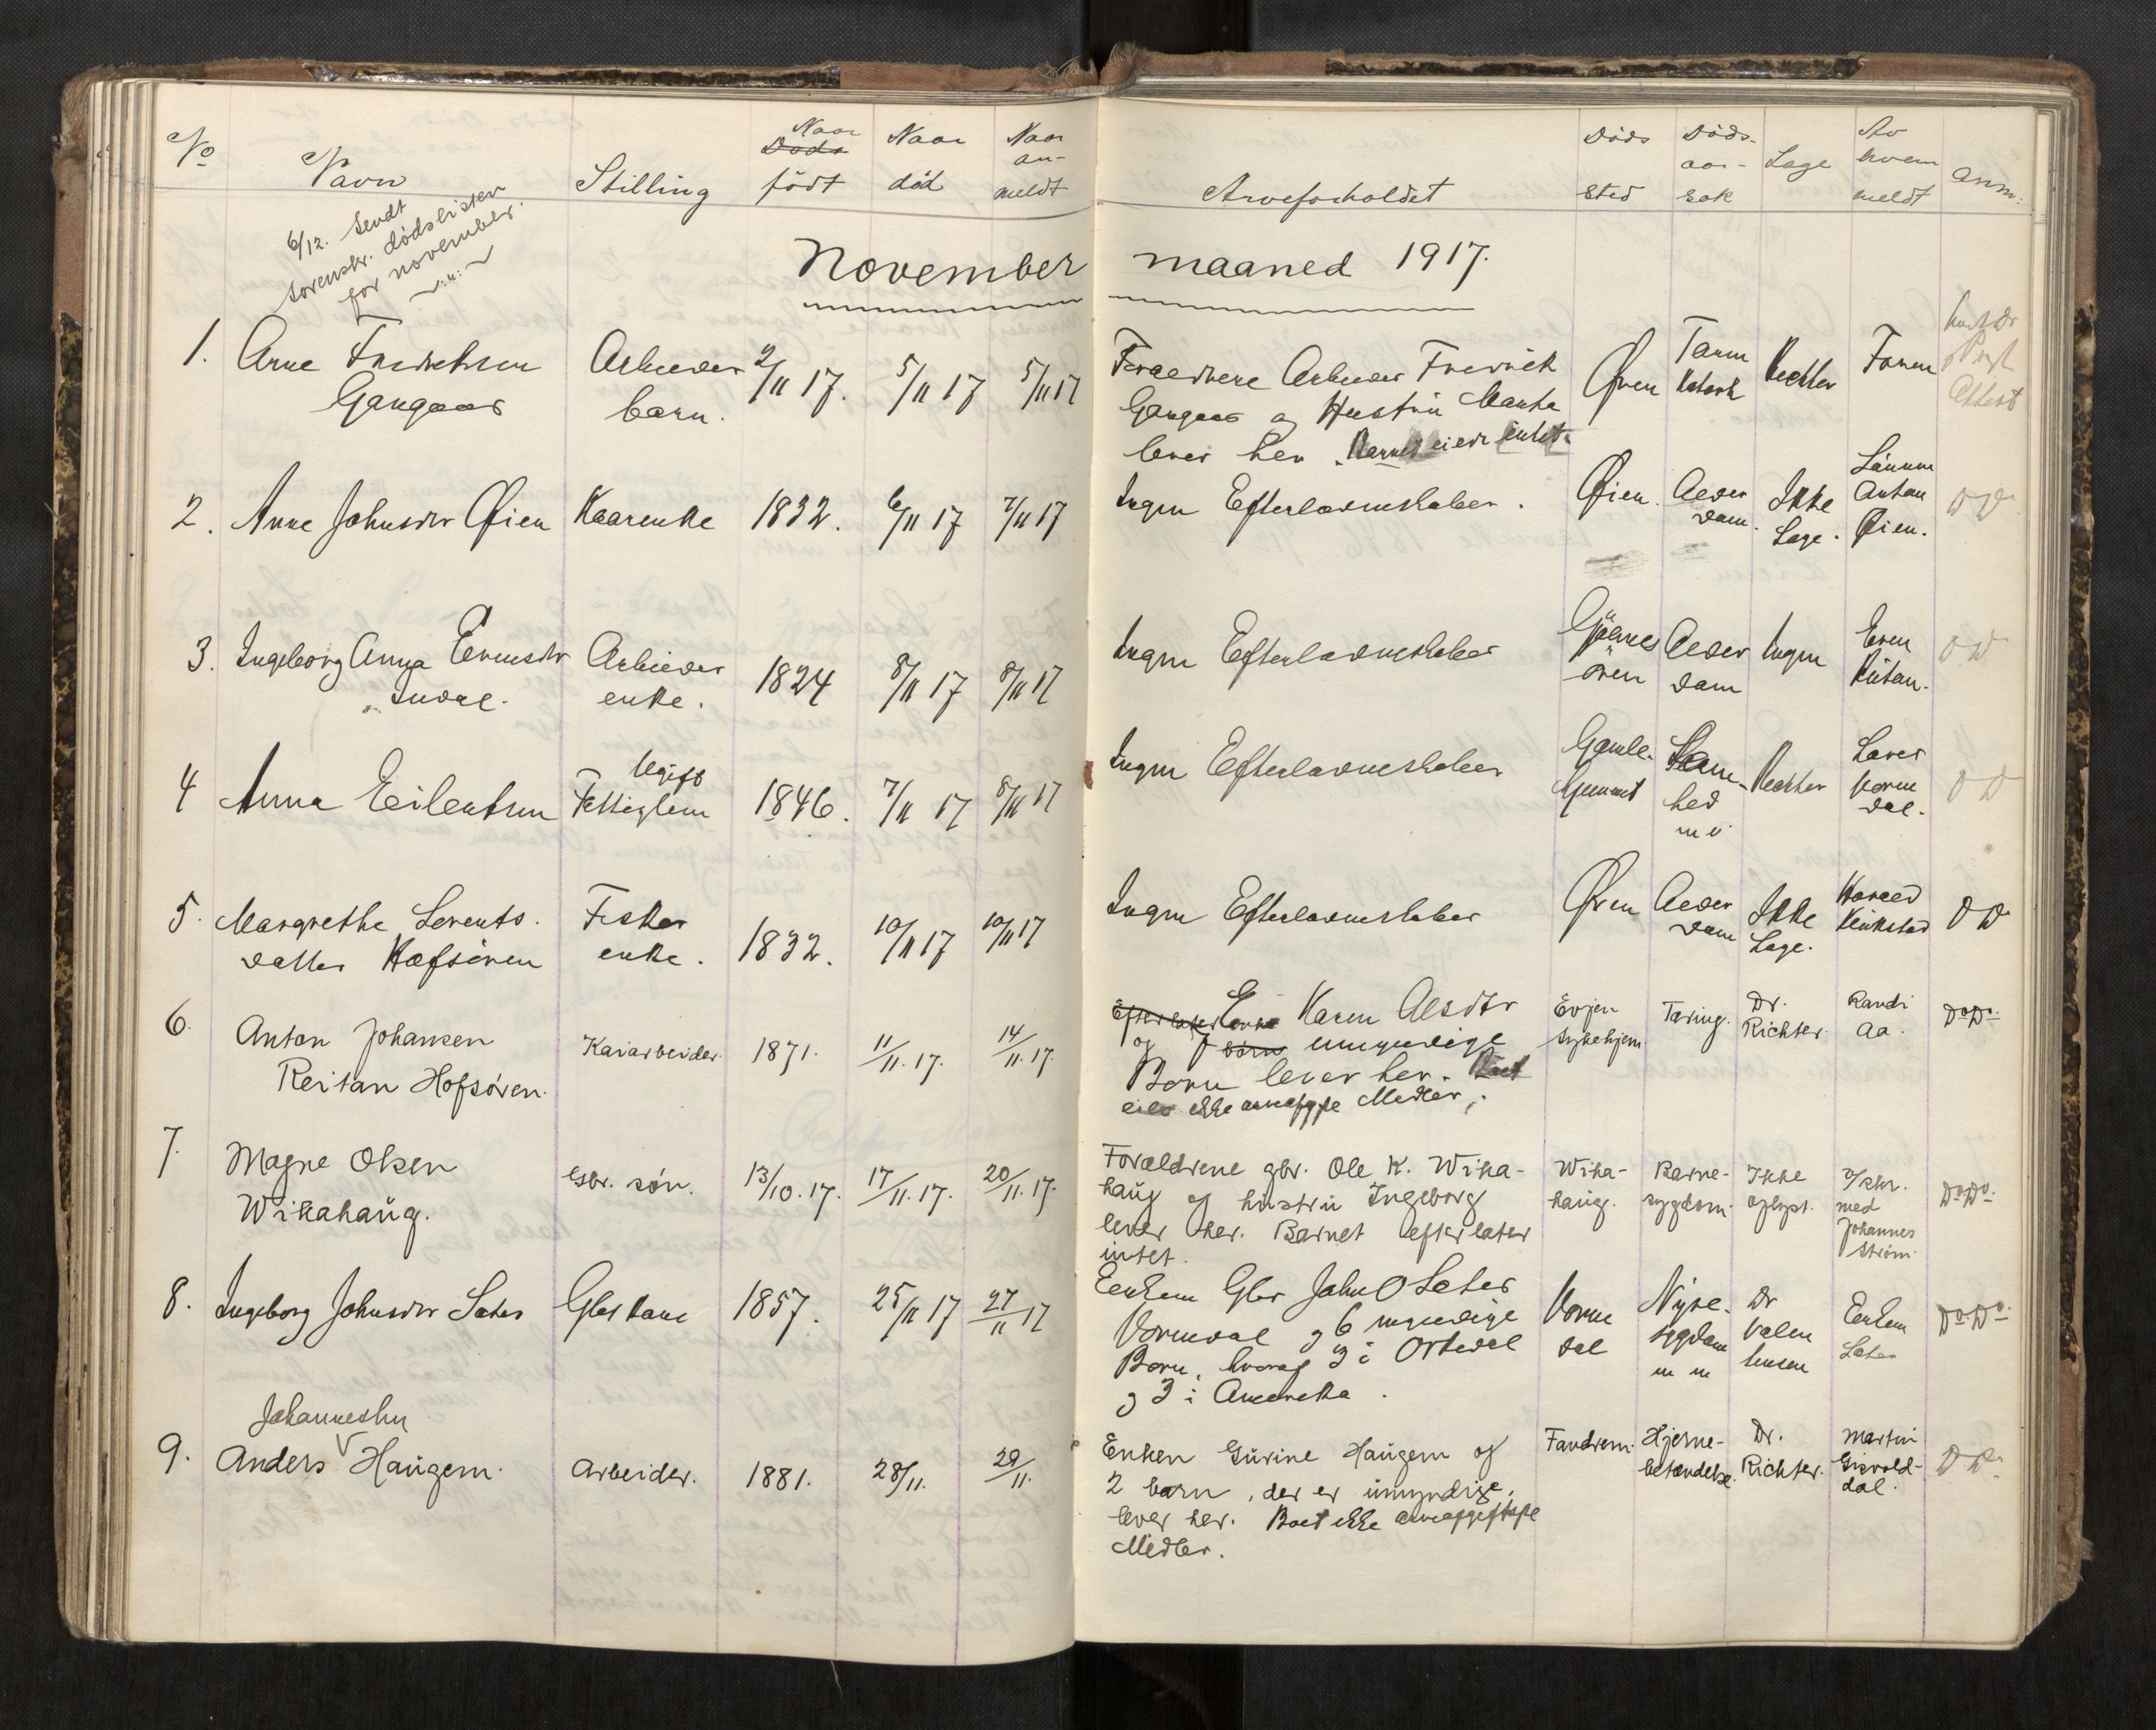 No
Navn
Stilling
Naar født
Naar død
Naar an- meldt
Arveforholdet
Døds sted
Døds- aar- sak
Læge
Av hvem meldt
Anm.
6/12. Sendt
sorenskr. dødslister
for november.
November maaned 1917.
1. Arne Fredriksen Arbeider 2/11 17. 5/11 17 5/11 17 Forældrene Arbeider Fredrik Øren Tarm Richter Faren
Gangaas barn. Gangaas og Hustru Marta Katarh Attest
lever her. Barnet eier intet.
2. Anne Johnsdtr Øien Kaarenke 1832. 6/11 17 7/11 17 Ingen Efterladenskaber. Øien. Alder Ikke Anton
dom. Læge. Øien.
3. Ingeborg Anna Evensdtr Arbeider 1824 8/11 17 8/11 17 Ingen Efterladenskaber Alder Ingen Even
enke. øren dom Reitan.
Ugift
4 Anna Eilertsen Fattiglem 1846. 7/11 17 8/11 17 Ingen Efterladenskaber Gamle- Richter Lars
hed Vorm
m v dal.
5. Margrethe Lorents. Fisker 1832. 10/11 17 10/11 17 Ingen Efterladenskaber Øren Alder Ikke Harald DD
datter Hofsøren enke. dom Læge. Kinkstad
6. Anton Johansen Kaiarbeider. 1871. 11/11. 17. 14/11. 17. Efterlater Enke Karen Olsdtr Evjen Tæring. Dr. Randi DoDo.
Reitan Hofsøren. og 7 børn umyndige sykehjem Richter. Aa.
Børn lever her. Boet
eier ikke Midler.
7. Magne Olsen Gbr. søn. 13/10. 17. 17/11. 17. 20/11. 17. Forældrene gbr. Ole K. Wika- Wika- Barne- Ikke DoDo.
Wikahaug. haug og hustru Ingeborg haug. sygdom. oplyst. med
lever her. Barnet efterlater Johannes
intet. Strøm.
8. Ingeborg Johnsdtr Sæter Gbr kone 1857. 25/11 17 27/11 17 Enkem Gbr John O Sæter Vorm Nyre- Dr Enkem DoDo.
Vormdal og 6 myndige dal sygdom Valen Sæter
Børn, hvorav 3 i Orkedal m m tinsen
og 3 i Amerika.
Johannessen
9. Anders V Haugen. Arbeider. 1881. 28/11. 29/11. Enken Gurine Haugen og Fandrem. Hjerne- Dr. Martin
2 barn, der er umyndige, betændelse. Richter. Gisvold-
lever her. Boet ikke arveafgiftspl dal.
Midler.